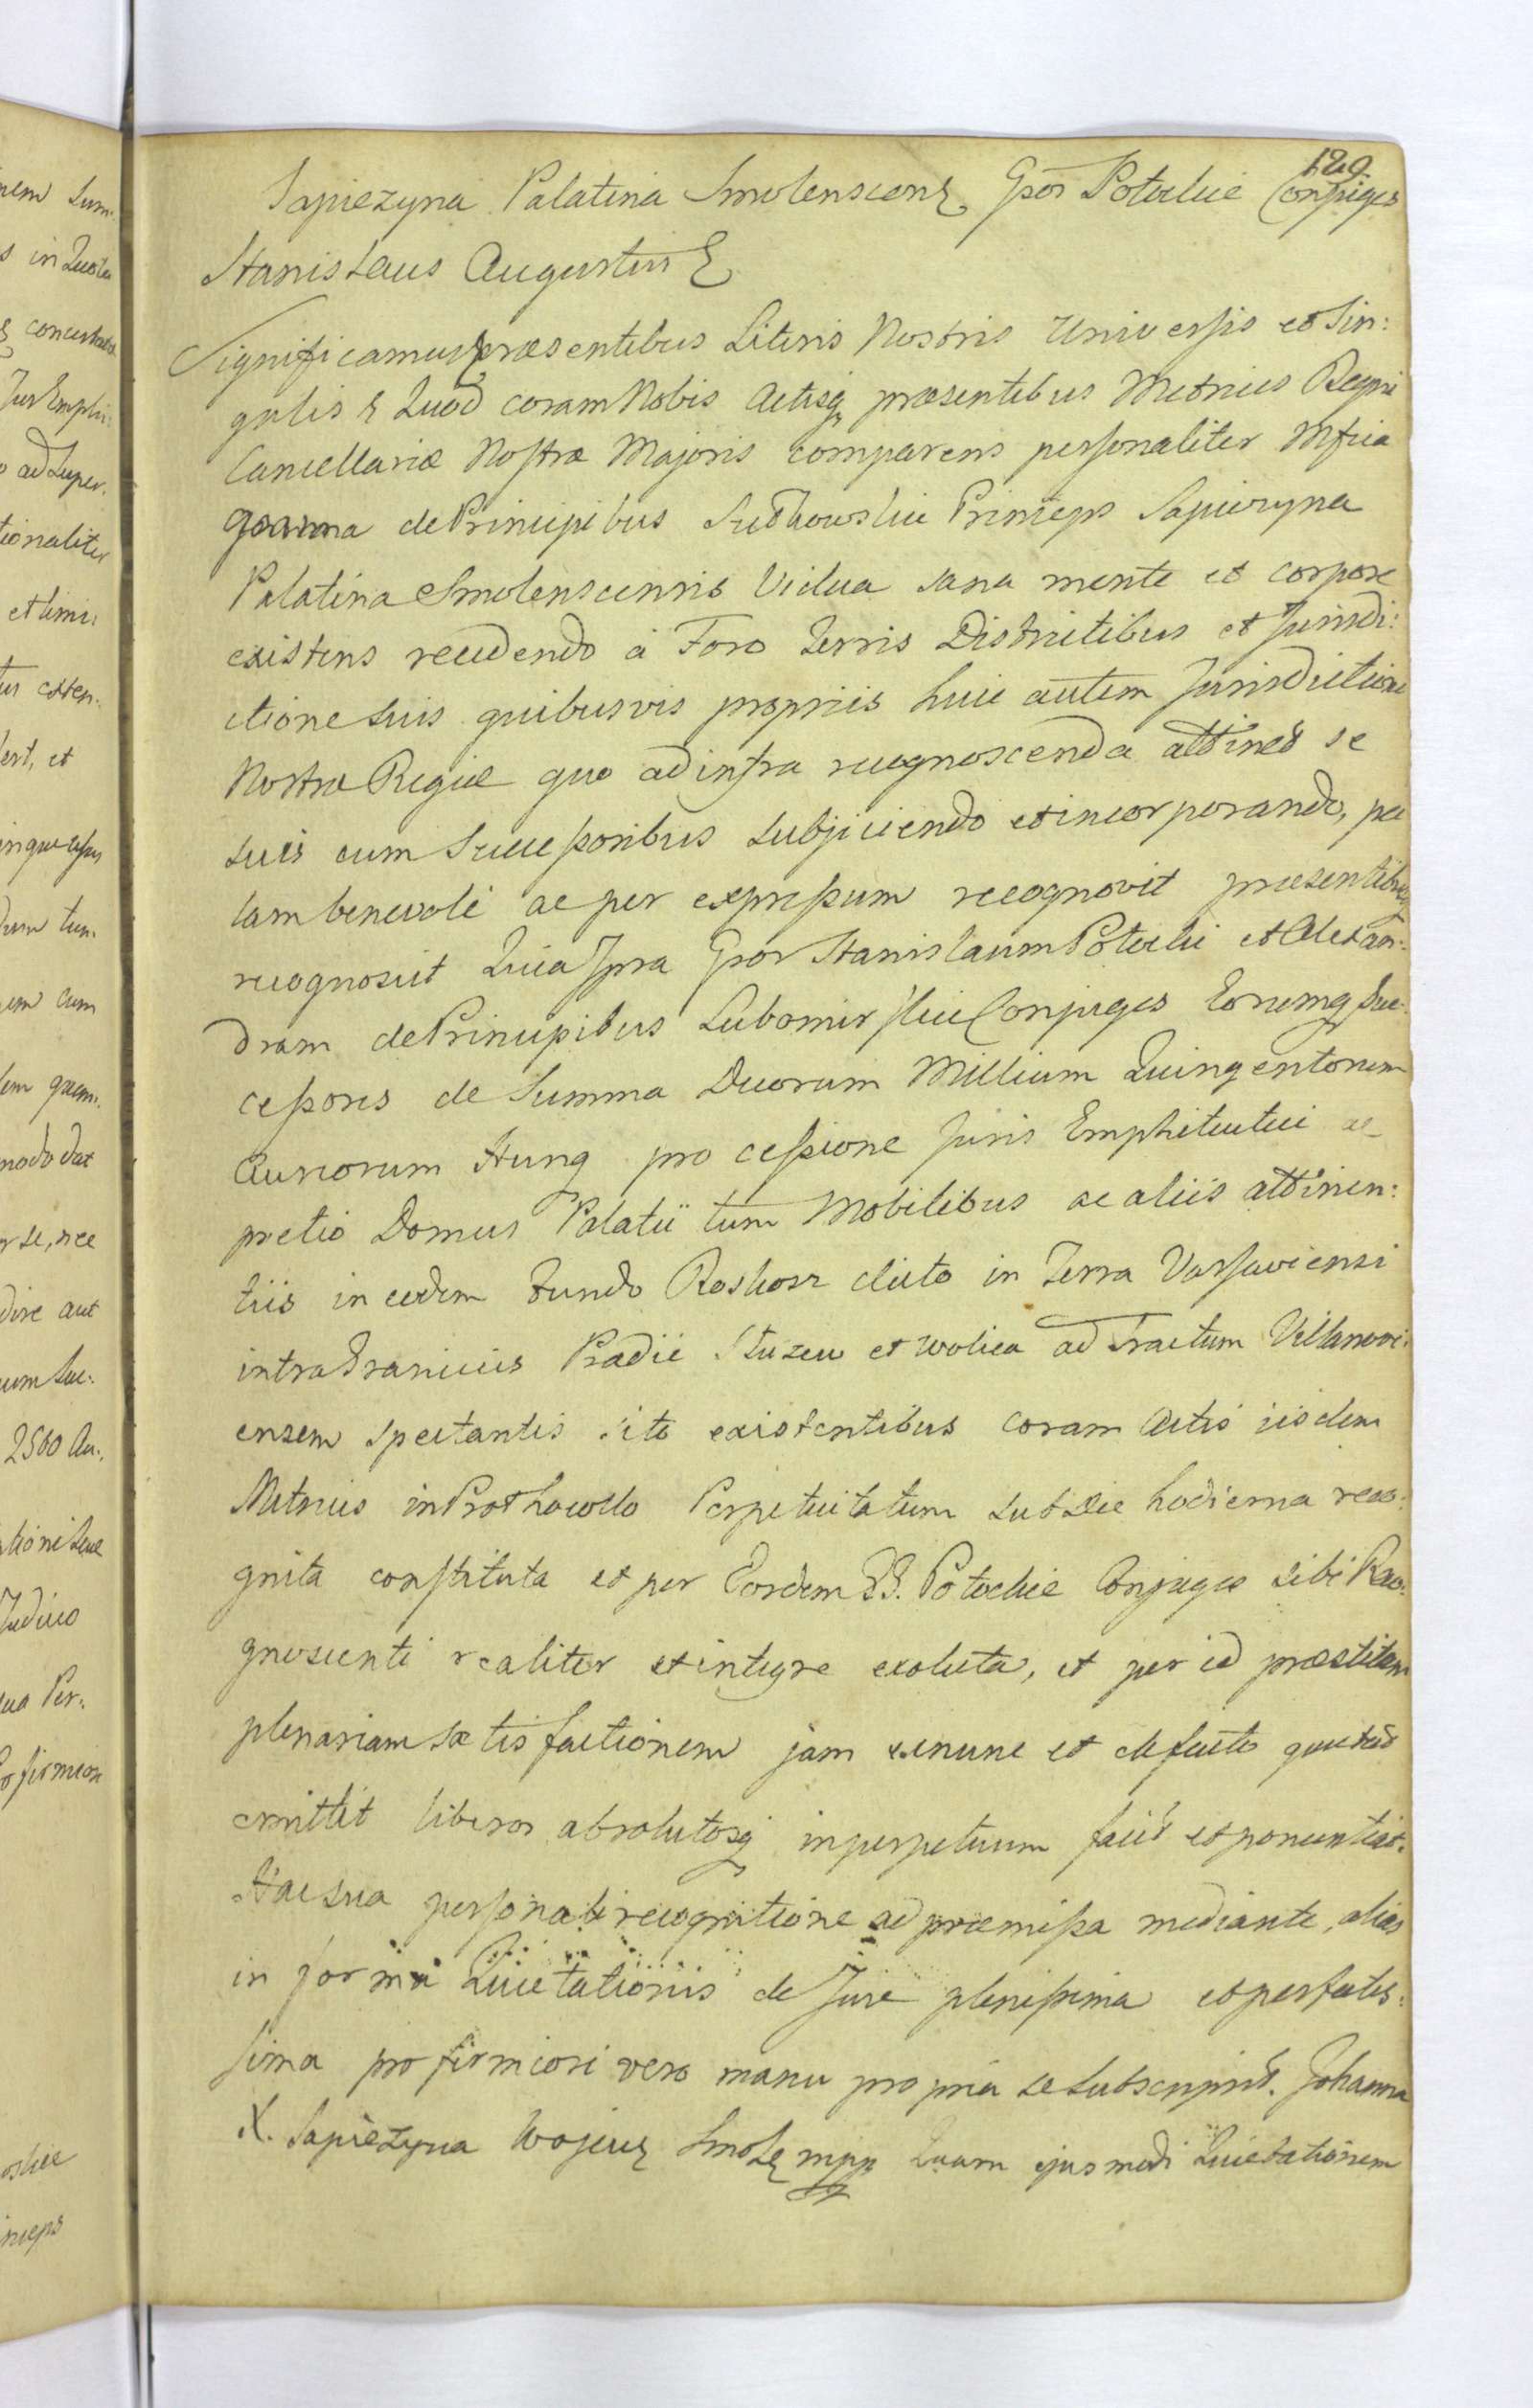 129
Sapiezyna Palatina Smolenscen Gsos Potockie Conjuges
Stanislaus Augustus
Significamus præsentibus Literis Nostris Universis et Sin:
gulis & Quod coram Nobis Actisq præsentibus Metrices Regni
Cancellariæ Nostræ Majoris comparens personaliter Mfica
Joanna de Principibus Sułkowskie Princeps Sapiezyna
Palatina Smolenscensis Vidua sana mente et corpore
existens recedendo à Foro Terris Districtibus et Jurisdi:
ctione suis quibusvis propriis huic autem Jurisdictioni
Nostræ Regiæ quo ad infra recognoscenda attinet se
suis cum Successoribus subjiciendo et incorporando, pa
lam benevole ac per expressum recognovit præsentibusq
recognoscit Quia Ipsa Gsos Stanislaum Potocki et Alexan:
dram de Principibus Lubomirskie Conjuges Eorumq Suc:
cessores de Summa Duorum Millium Quingentorum
Aureorum Hung pro cessione Juris Emphiteutici ac
pretio Domus Palatii tum Mobilibus ac aliis attinen:
tiis in eodem Fundo Roskosz dicto in Terra Varsaviensi
intra Granicies Prædii Słuzew et Wolica ad Tractum Villanovi:
ensem spectantis sito existentibus coram Actis iisdem
Metrices in Prothocollo Perpetuitatum sub die hodierna reco:
gnita constituta et per Eosdem GG. Potockie Conjuges sibi Reco:
gnoscenti realiter et integre exoluta, et per id præstitam
plenariam satisfactionem jam exnunc et defacto quietat
emittit liberos absolutosq in perpetuum facit et pronunciat.
Hac sua personali recognitione ad præmissa mediante, alias
in forma Quietationis de Jure plenissima et perfectis:
sima pro firmiori vero manu propria se subscripsit. Johanna
X. Sapiezyna Wojew Smol mpp Quam ejusmodi Quietationem